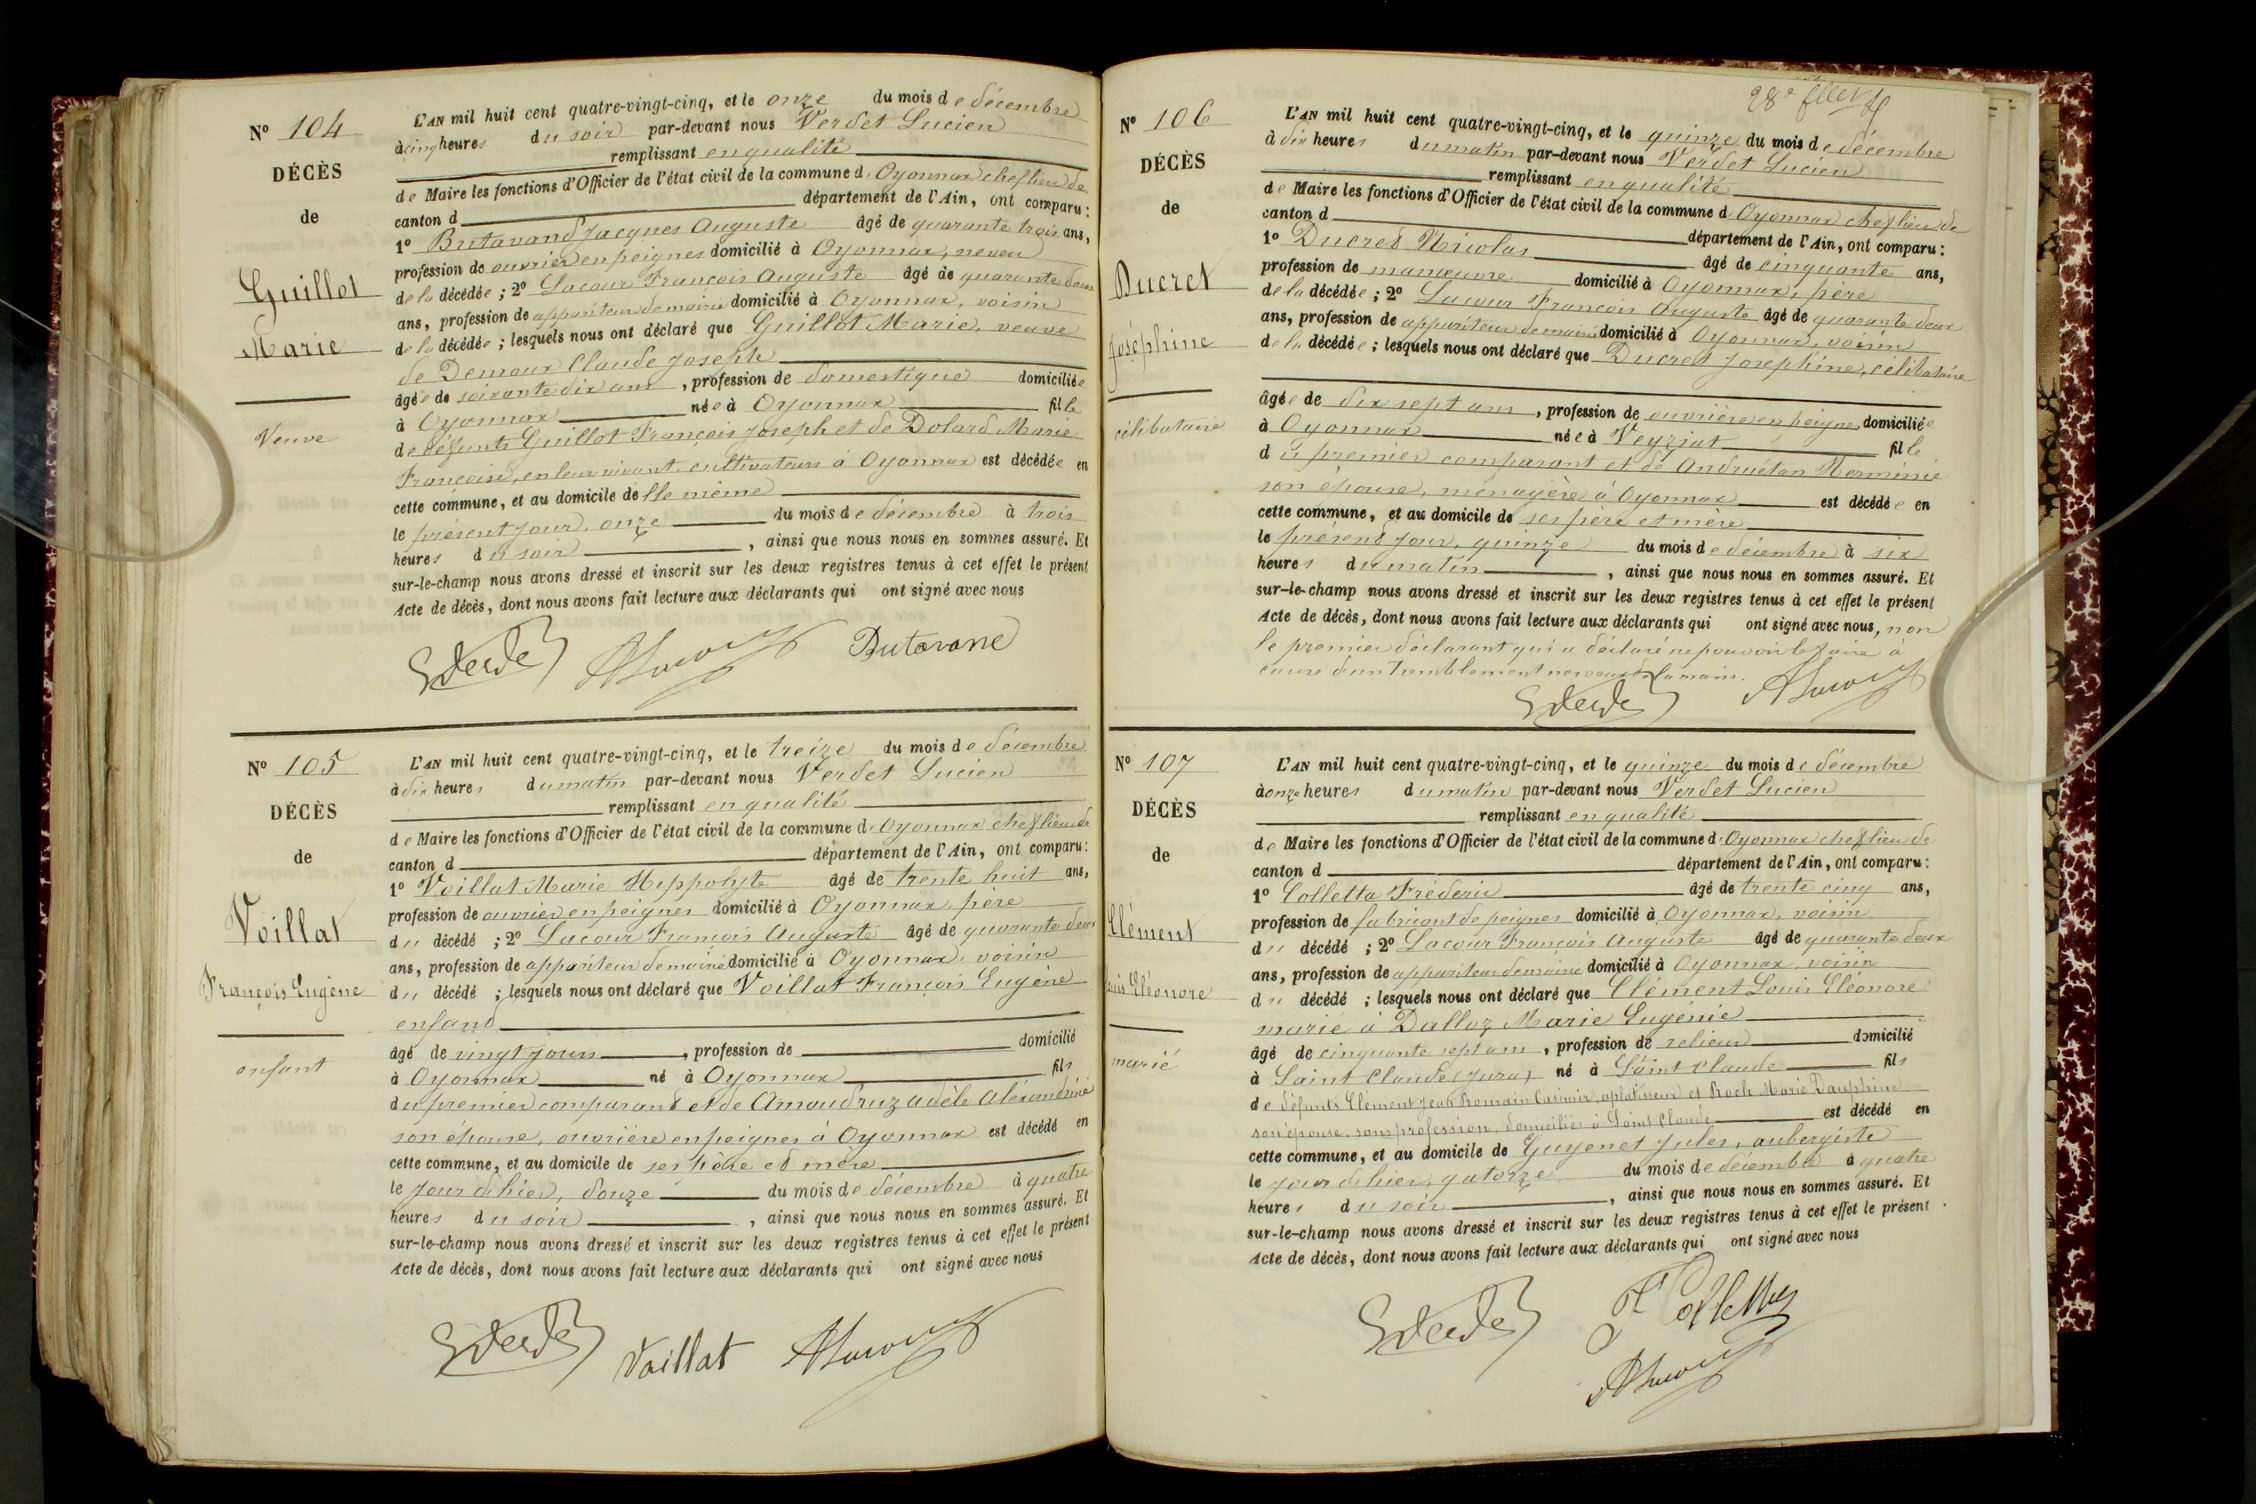 Nº 104
DÉCÈS
de
Guillot
Marie
Veuve
L'AN mil huit cent quatre-vingt-cinq, et le onze du mois de décembre
à cinq heures du soir par-devant nous Verdet Lucien
remplissant en qualité
de Maire les fonctions d'Officier de l'état civil de la commune d'Oyonnax chef lieu de
canton d département de l'Ain, ont comparu :
1º Butavand Jacques Auguste âgé de quarante trois ans,
profession de ouvrier en peignes domicilié à Oyonnax, neveu
de la décédée ; 2º Lacour François Auguste âgé de quarante deux
ans, profession de appariteur de mairie domicilié à Oyonnax, voisin
de la décédée ; lesquels nous ont déclaré que Guillot Marie, veuve
de Demoux Claude Joseph
âgée de soixante dix ans, profession de domestique domiciliée
à Oyonnax née à Oyonnax fille
de défunts Guillot François Joseph et de Dolard Marie
Françoise, en leur vivant cultivateurs à Oyonnax est décédée en
cette commune, et au domicile de elle même
le présent jour, onze du mois de décembre à trois
heures du soir, ainsi que nous nous en sommes assuré. Et
sur-le-champ nous avons dressé et inscrit sur les deux registres tenus à cet effet le présent
Acte de décès, dont nous avons fait lecture aux déclarants qui ont signé avec nous
Butavand
Nº 105
DÉCÈS
de
Voillat
François Eugène
enfant
L'AN mil huit cent quatre-vingt-cinq, et le treize du mois de décembre
à dix heures du matin par-devant nous Verdet Lucien
remplissant en qualité
de Maire les fonctions d'Officier de l'état civil de la commune d'Oyonnax chef lieu de
canton d département de l'Ain, ont comparu :
1º Voillat Marie Hippolyte âgé de trente huit ans,
profession de ouvrier en peignes domicilié à Oyonnax, père
du décédé ; 2º Lacour François Auguste âgé de quarante deux
ans, profession de appariteur de mairie domicilié à Oyonnax, voisin
du décédé ; lesquels nous ont déclaré que Voillat François Eugène
enfant
âgé de vingt jours, profession de domicilié
à Oyonnax né à Oyonnax fils
du premier comparant et de Amoudruz Adèle Alexandrine
son épouse, ouvrière en peignes à Oyonnax est décédé en
cette commune, et au domicile de ses père et mère
le jour d'hier, douze du mois de décembre à quatre
heures du soir, ainsi que nous nous en sommes assuré. Et
sur-le-champ nous avons dressé et inscrit sur les deux registres tenus à cet effet le présent
Acte de décès, dont nous avons fait lecture aux déclarants qui ont signé avec nous
Voillat
Nº 106
DÉCÈS
de
Ducret
Joséphine
célibataire
L'AN mil huit cent quatre-vingt-cinq, et le quinze du mois de décembre
à dix heures du matin par-devant nous Verdet Lucien
remplissant en qualité
de Maire les fonctions d'Officier de l'état civil de la commune d'Oyonnax chef lieu de
canton d département de l'Ain, ont comparu :
1º Ducret Nicolas âgé de cinquante ans,
profession de manœuvre domicilié à Oyonnax, père
de la décédée ; 2º Lacour François Auguste âgé de quarante deux
ans, profession de appariteur de mairie domicilié à Oyonnax, voisin
de la décédée ; lesquels nous ont déclaré que Ducret Joséphine, célibataire
âgée de dix sept ans, profession de ouvrière en peignes domiciliée
à Oyonnax née à Veyziat fille
du premier comparant et de Andruétan Herminie
son épouse, ménagère à Oyonnax est décédée en
cette commune, et au domicile de ses père et mère
le présent jour, quinze du mois de décembre à six
heures du matin, ainsi que nous nous en sommes assuré. Et
sur-le-champ nous avons dressé et inscrit sur les deux registres tenus à cet effet le présent
Acte de décès, dont nous avons fait lecture aux déclarants qui ont signé avec nous, non
le premier déclarant qui a déclaré ne pouvoir le faire à
cause d'un tremblement nerveux de la main.
Nº 107
DÉCÈS
de
Clément
Louis Eléonore
marié
L'AN mil huit cent quatre-vingt-cinq, et le quinze du mois de décembre
à onze heures du matin par-devant nous Verdet Lucien
remplissant en qualité
de Maire les fonctions d'Officier de l'état civil de la commune d'Oyonnax chef lieu de
canton d département de l'Ain, ont comparu :
1º Colletta Fréderic âgé de trente cinq ans,
profession de fabricant de peignes domicilié à Oyonnax, voisin
du décédé ; 2º Lacour François Auguste âgé de quarante deux
ans, profession de appariteur de mairie domicilié à Oyonnax, voisin
du décédé ; lesquels nous ont déclaré que Clément Louis Eléonore
marié à Dalloz Marie Eugénie
âgé de cinquante sept ans, profession de relieur domicilié
à Saint Claude (Jura) né à Saint Claude fils
de défunts Clément Jean Romain Casimir, aplatisseur et Roch Marie Dauphine
son épouse, sans profession, domiciliés à Saint Claude est décédé en
cette commune, et au domicile de Guyenet Jules, aubergiste
le jour d'hier, quatorze du mois de décembre à quatre
heures du soir, ainsi que nous nous en sommes assuré. Et
sur-le-champ nous avons dressé et inscrit sur les deux registres tenus à cet effet le présent
Acte de décès, dont nous avons fait lecture aux déclarants qui ont signé avec nous